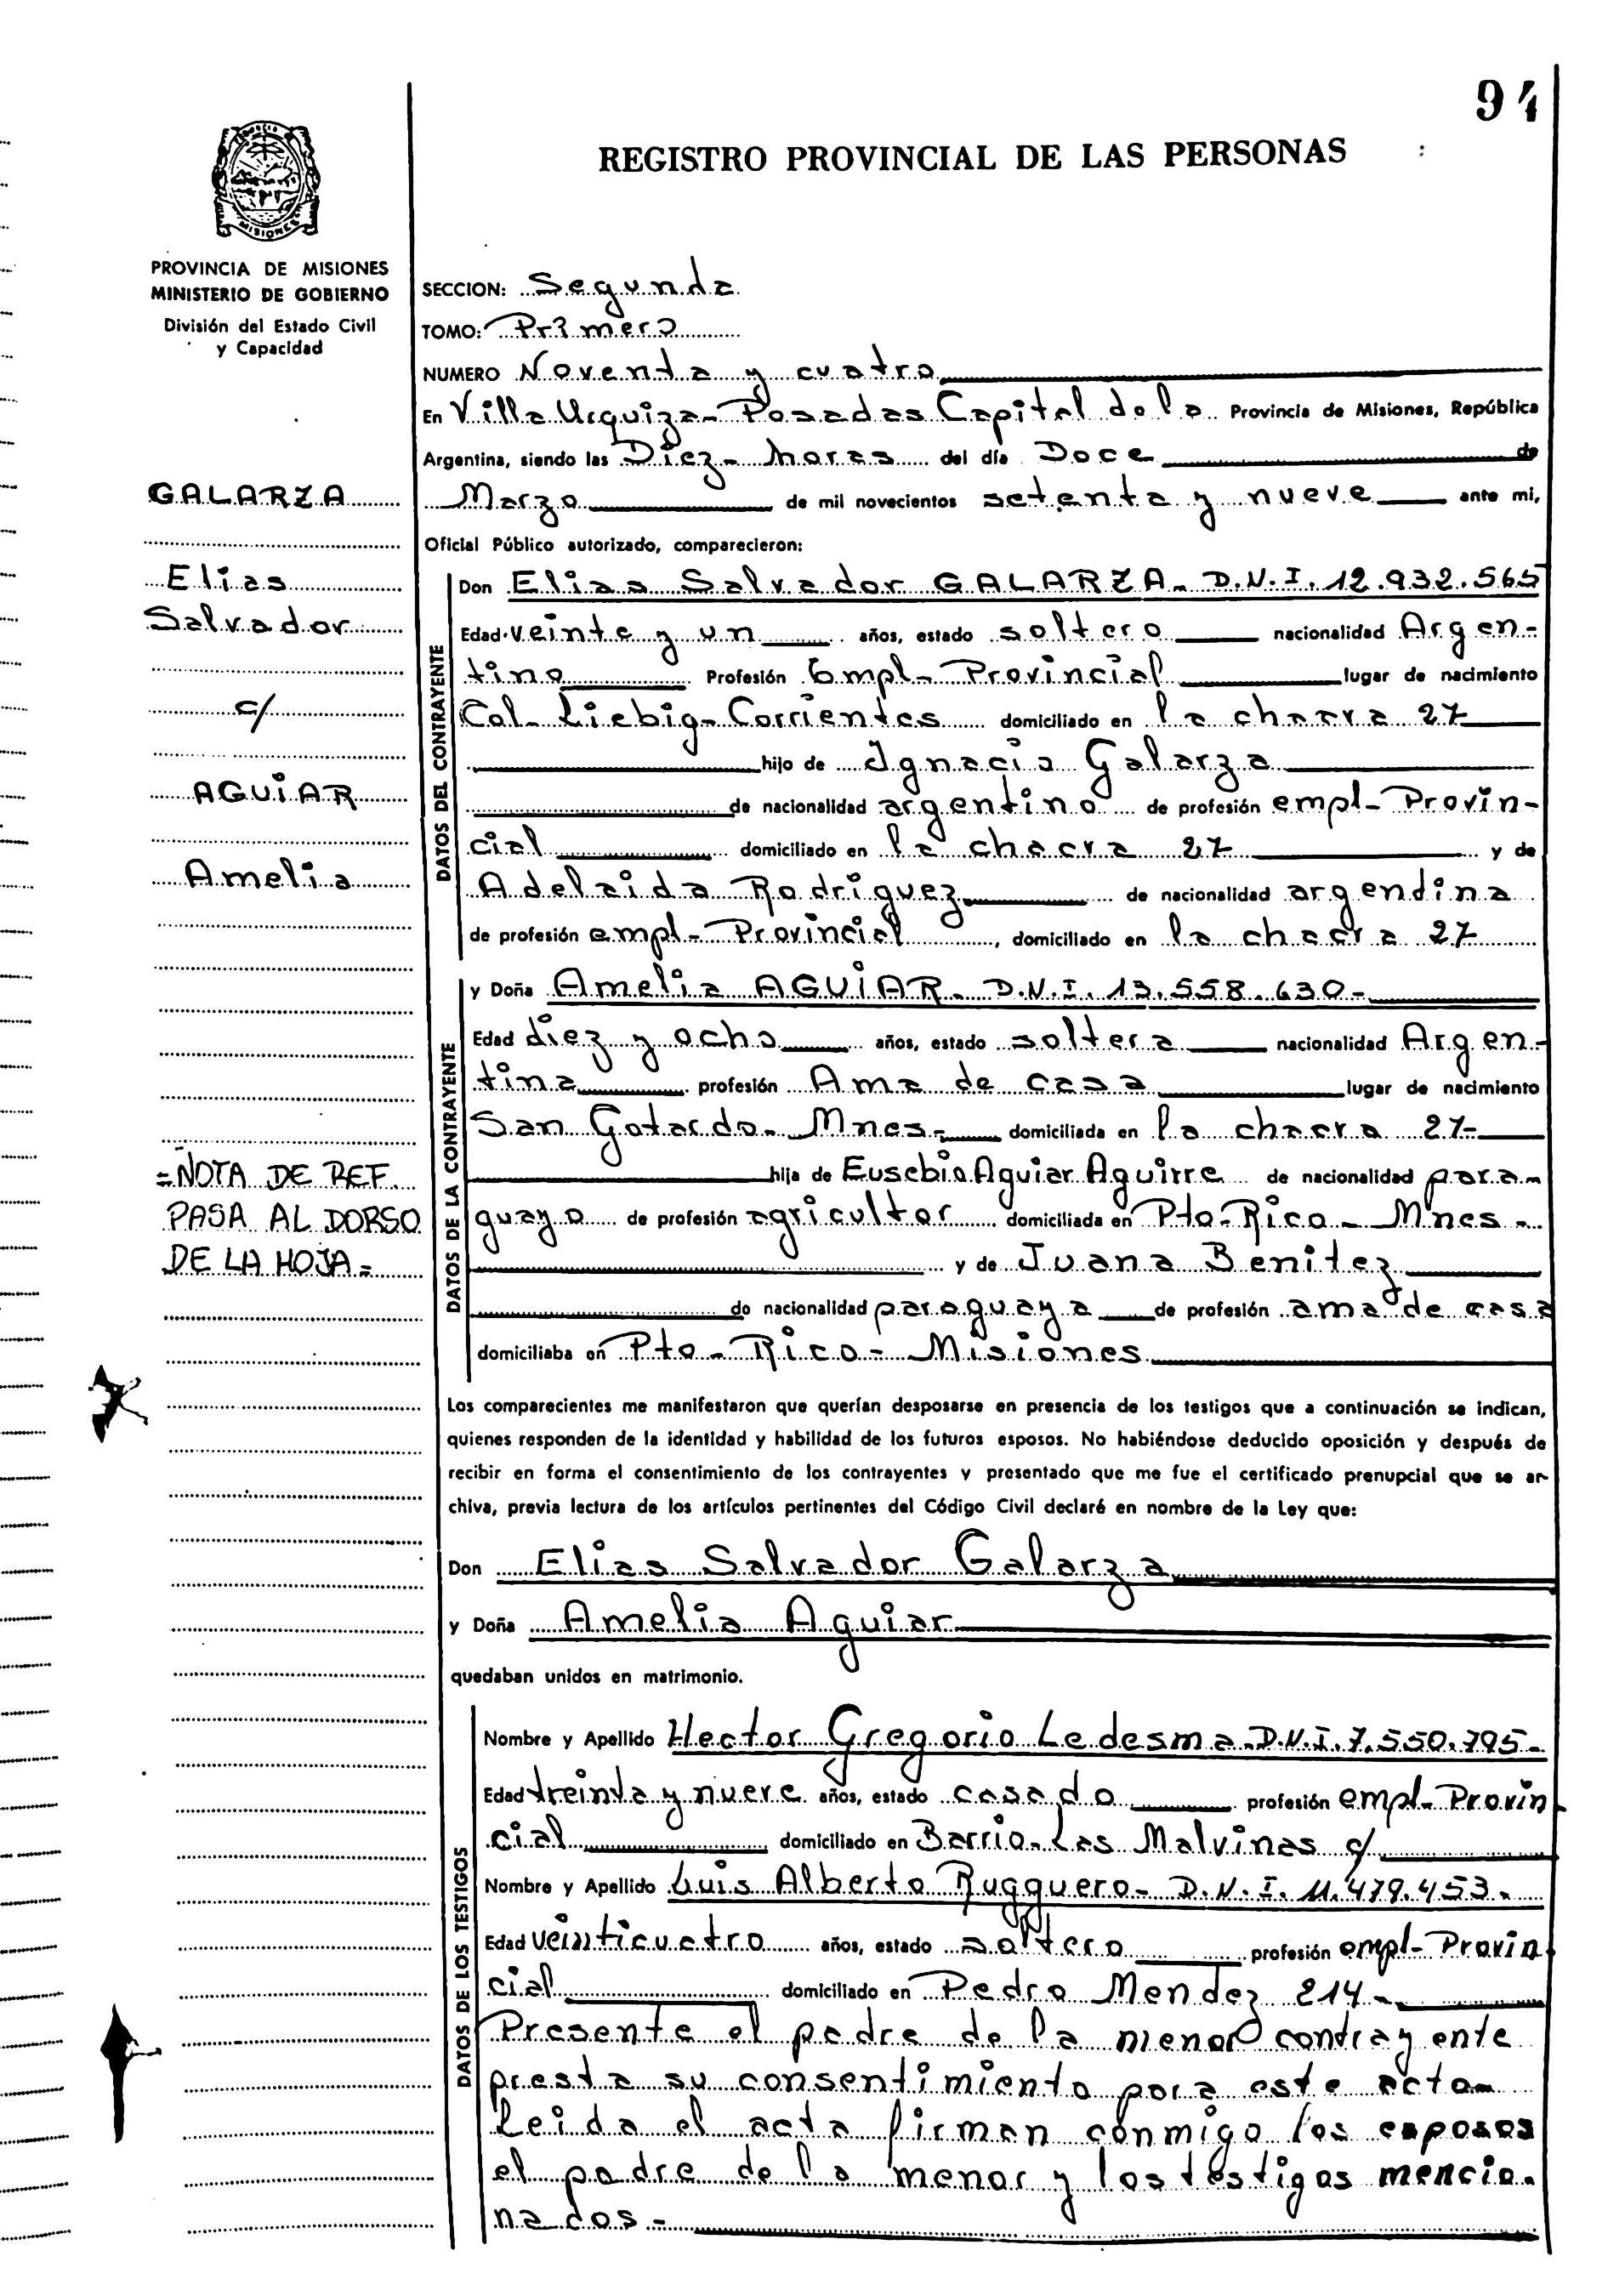 94
REGISTRO PROVINCIAL DE LAS PERSONAS
MISIONES
PROVINCIA DE MISIONES
MINISTERIO DE GOBIERNO
División del Estado Civil
y Capacidad
GALARZA
Elias
Salvador
c/
AGUIAR
Amelia
=NOTA DE REF.
PASA AL DORSO
DE LA HOJA=
SECCION: Segunda
TOMO: Primero
NUMERO Noventa y cuatro
En Villa Urquiza- Posadas Capital de la Provincia de Misiones, República
Argentina, siendo las Diez- horas del día Doce de
Marzo de mil novecientos setenta y nueve ante mi,
Oficial Público autorizado, comparecieron:
DATOS DEL CONTRAYENTE
Don Elias Salvador GALARZA- D.N.I. 12.932.565
Edad veinte y un años, estado soltero nacionalidad Argen-
tino Profesión Empl- Provincial lugar de nacimiento
Col- Liebig- Corrientes domiciliado en la chacra 27
hijo de Ignacio Galarza
de nacionalidad argentino de profesión empl- Provin-
cial domiciliado en la chacra 27 y de
Adelaida Rodriguez de nacionalidad argentina
de profesión empl- Provincial, domiciliado en la chacra 27
DATOS DE LA CONTRAYENTE
y Doña Amelia AGUIAR- D.N.I. 13.558.630-
Edad diez y ocho años, estado soltera nacionalidad Argen-
tina profesión Ama de casa lugar de nacimiento
San Gotardo- Mnes- domiciliada en la chacra 27-
hija de Eusebio Aguiar Aguirre de nacionalidad para-
guayo de profesión agricultor domiciliada en Pto-Rico- Mnes-
y de Juana Benitez
de nacionalidad paraguaya de profesión ama de casa
domiciliaba en Pto- Rico- Misiones
Los comparecientes me manifestaron que querían desposarse en presencia de los testigos que a continuación se indican,
quienes responden de la identidad y habilidad de los futuros esposos. No habiéndose deducido oposición y después de
recibir en forma el consentimiento de los contrayentes y presentado que me fue el certificado prenupcial que se ar-
chiva, previa lectura de los artículos pertinentes del Código Civil declaré en nombre de la Ley que:
Don Elias Salvador Galarza
y Doña Amelia Aguiar
quedaban unidos en matrimonio.
DATOS DE LOS TESTIGOS
Nombre y Apellido Hector Gregorio Ledesma-D.N.I. 7.550.795-
Edad treinta y nueve años, estado casado profesión empl- Provin
cial domiciliado en Barrio- Las Malvinas c/
Nombre y Apellido Luis Alberto Rugguero- D.N.I. 11.479.453-
Edad veinticuatro años, estado soltero profesión empl- Provin
cial domiciliado en Pedro Mendez 214-
Presente el padre de la menor contrayente
presta su consentimiento para este acto-
Leida el acta firman conmigo los esposos
el padre de la menor y los testigos mencio-
nados-